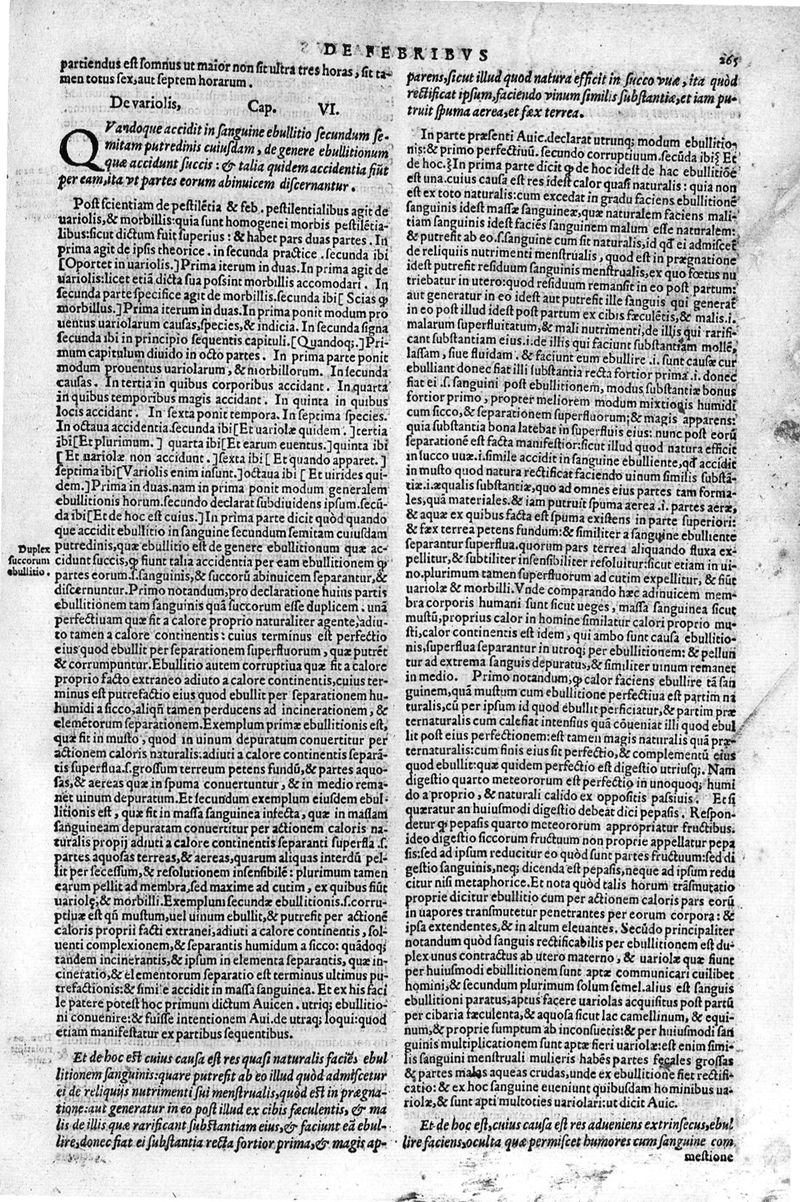 DE FEBRIBVS
265
partiendus est somnus ut maior non sit ultra tres horas, sit ta-
men totus sex, aut septem horarum.
De variolis, Cap. VI.
QVandoque accidit in sanguine ebullitio secundum se-
mitam putredinis cuiusdam, de genere ebullitionum
quæ accidunt succis: & talia quidem accidentia fiũt
per eam, ita vt partes eorum abinuicem discernantur.
Post scientiam de pestilẽtia & feb. pestilentialibus agit de
uariolis, & morbillis: quia sunt homogenei morbis pestilẽtia-
libus: sicut dictum fuit superius: & habet pars duas partes. In
prima agit de ipsis theorice. in secunda practice. secunda ibi
[Oportet in uariolis.] Prima iterum in duas. In prima agit de
uariolis: licet etiã dicta sua possint morbillis accomodari. In
secunda parte specifice agit de morbillis. secunda ibi [Scias ꝙ
morbillus.] Prima iterum in duas. In prima ponit modum pro
uentus uariolarum causas, species, & indicia. In secunda signa
secunda ibi in principio sequentis capituli. [Quandoq;.] Pri-
mum capitulum diuido in octo partes. In prima parte ponit
modum prouentus uariolarum, & morbillorum. In secunda
causas. In tertia in quibus corporibus accidant. In quarta
in quibus temporibus magis accidant. In quinta in quibus
locis accidant. In sexta ponit tempora. In septima species.
In octaua accidentia. secunda ibi [Et uariolæ quidem.] tertia
ibi [Et plurimum.] quarta ibi [Et earum euentus.] quinta ibi
[Et uariolæ non accidunt.] sexta ibi [Et quando apparet.]
septima ibi [Variolis enim insunt.] octaua ibi [Et uirides qui-
dem.] Prima in duas. nam in prima ponit modum generalem
ebullitionis horum. secundo declarat subdiuidens ipsum. secũ-
da ibi [Et de hoc est cuius.] In prima parte dicit quòd quando
que accidit ebullitio in sanguine secundum semitam cuiusdam
putredinis, quæ ebullitio est de genere ebullitionum quæ ac-
cidunt succis, ꝙ fiunt talia accidentia per eam ebullitionem ꝙ
partes eorum. s. sanguinis, & succorũ abinuicem separantur, &
discernuntur. Primo notandum, pro declaratione huius partis
ebullitionem tam sanguinis quã succorum esse duplicem. unã
perfectiuam quæ fit a calore proprio naturaliter agente, adiu-
to tamen a calore continentis: cuius terminus est perfectio
eius quod ebullit per separationem superfluorum, quæ putrẽt
& corrumpuntur. Ebullitio autem corruptiua quæ fit a calore
proprio facto extraneo adiuto a calore continentis, cuius ter-
minus est putrefactio eius quod ebullit per separationem hu-
humidi a sicco, aliqñ tamen perducens ad incinerationem, &
elemẽtorum separationem. Exemplum primæ ebullitionis est,
quæ fit in musto, quod in uinum depuratum conuertitur per
actionem caloris naturalis: adiuti a calore continentis separã-
tis superflua. s. grossum terreum petens fundũ, & partes aquo-
sas, & aereas quæ in spuma conuertuntur, & in medio rema-
net uinum depuratum. Et secundum exemplum eiusdem ebul-
litionis est, quæ fit in massa sanguinea infecta, quæ in massam
sanguineam depuratam conuertitur per actionem caloris na-
turalis proprij adiuti a calore continentis separanti superflua .s.
partes aquosas terreas, & aereas, quarum aliquas interdũ pel-
lit per secessum, & resolutionem insensibilẽ: plurimum tamen
earum pellit ad membra, sed maxime ad cutim, ex quibus fiũt
uariolę, & morbilli. Exemplum secundæ ebullitionis. s. corru-
ptiuæ est qñ mustum, uel uinum ebullit, & putrefit per actionẽ
caloris proprii facti extranei, adiuti a calore continentis, sol-
uenti complexionem, & separantis humidum a sicco: quãdoq;
tandem incinerantis, & ipsum in elementa separantis, quæ in-
cineratio, & elementorum separatio est terminus ultimus pu-
trefactionis: & simile accidit in massa sanguinea. Et ex his faci
le patere potest hoc primum dictum Auicen. utriq; ebullitio-
ni conuenire: & fuisse intentionem Aui. de utraq; loqui: quod
etiam manifestatur ex partibus sequentibus.
Et de hoc est cuius causa est res quasi naturalis faciẽs ebul
litionem sanguinis: quare putrefit ab eo illud quòd admiscetur
ei de reliquijs nutrimenti sui menstrualis, quòd est in prægna-
tione: aut generatur in eo post illud ex cibis fæculentis, & ma
lis de illis quæ rarificant substantiam eius, & faciunt eã ebul-
lire, donec fiat ei substantia recta fortior prima, & magis ap-
Duplex
succorum
ebullitio.
parens, sicut illud quod natura efficit in succo vuæ, ita quòd
rectificat ipsum, faciendo vinum similis substantiæ, et iam pu-
truit spuma aerea, et fæx terrea.
In parte præsenti Auic. declarat utrunq; modum ebullitio-
nis: & primo perfectiuũ. secundo corruptiuum. secũda ibi [Et
de hoc.] In prima parte dicit ꝙ de hoc idest de hac ebullitiõe
est una. cuius causa est res idest calor quasi naturalis: quia non
est ex toto naturalis: cum excedat in gradu faciens ebullitionẽ
sanguinis idest massæ sanguineæ, quæ naturalem faciens mali-
tiam sanguinis idest faciẽs sanguinem malum esse naturalem:
& putrefit ab eo. s. sanguine cum sit naturalis, id qđ ei admiscet̃
de reliquiis nutrimenti menstrualis, quod est in prægnatione
idest putrefit residuum sanguinis menstrualis, ex quo fœtus nu
triebatur in utero: quod residuum remansit in eo post partum:
aut generatur in eo idest aut putrefit ille sanguis qui generat̃
in eo post illud idest post partum ex cibis fæculẽtis, & malis .i.
malarum superfluitatum, & mali nutrimenti, de illis qui rarifi-
cant substantiam eius. i. de illis qui faciunt substantiam mollẽ,
lassam, siue fluidam. & faciunt eum ebullire .i. sunt causæ cur
ebulliant donec fiat illi substantia recta fortior prima .i. donec
fiat ei .s. sanguini post ebullitionem, modus substantiæ bonus
fortior primo, propter meliorem modum mixtionis humidi
cum sicco, & separationem superfluorum; & magis apparens:
quia substantia bona latebat in superfluis eius: nunc post eorũ
separationẽ est facta manifestior: sicut illud quod natura efficit
in succo uuæ .i. simile accidit in sanguine ebulliente, qđ accidit
in musto quod natura rectificat faciendo uinum similis substã-
tiæ .i. æqualis substantiæ, quo ad omnes eius partes tam forma-
les, quã materiales. & iam putruit spuma aerea .i. partes aereæ,
& aquæ ex quibus facta est spuma existens in parte superiori:
& fæx terrea petens fundum: & similiter a sanguine ebulliente
separantur superflua. quorum pars terrea aliquando fluxa ex-
pellitur, & subtiliter insensibiliter resoluitur: sicut etiam in ui-
no. plurimum tamen superfluorum ad cutim expellitur, & fiũt
uariolæ & morbilli. Vnde comparando hæc adinuicem mem-
bra corporis humani sunt sicut ueges, massa sanguinea sicut
mustũ, proprius calor in homine similatur calori proprio mu-
sti, calor continentis est idem, qui ambo sunt causa ebullitio-
nis, superflua separantur in utroq; per ebullitionem: & pellun
tur ad extrema sanguis depuratus, & similiter uinum remanet
in medio. Primo notandum, ꝙ calor faciens ebullire tã san
guinem, quã mustum cum ebullitione perfectiua est partim na
turalis, cũ per ipsum id quod ebullit perficiatur, & partim præ
ternaturalis cum calefiat intensius quã cõueniat illi quod ebul
lit post eius perfectionem: est tamen magis naturalis quã præ-
ternaturalis: cum finis eius sit perfectio, & complementũ eius
quod ebullit: quæ quidem perfectio est digestio utriusq;. Nam
digestio quarto meteororum est perfectio in unoquoq; humi
do a proprio, & naturali calido ex oppositis passiuis. Et si
quæratur an huiusmodi digestio debeat dici pepasis. Respon-
detur ꝙ pepasis quarto meteororum appropriatur fructibus.
ideo digestio siccorum fructuum non proprie appellatur pepa
sis: sed ad ipsum reducitur eo quòd sunt partes fructuum: sed di
gestio sanguinis, neq; dicenda est pepasis, neque ad ipsum redu
citur nisi metaphorice. Et nota quòd talis horum trãsmutatio
proprie dicitur ebullitio cum per actionem caloris pars eorũ
in uapores transmutetur penetrantes per eorum corpora: &
ipsa extendentes, & in altum eleuantes. Secũdo principaliter
notandum quòd sanguis rectificabilis per ebullitionem est du-
plex unus contractus ab utero materno, & uariolæ quæ fiunt
per huiusmodi ebullitionem sunt aptæ communicari cuilibet
homini, & secundum plurimum solum semel. alius est sanguis
ebullitioni paratus, aptus facere uariolas acquisitus post partũ
per cibaria fæculenta, & aquosa sicut lac camellinum, & equi-
num, & proprie sumptum ab inconsuetis: & per huiusmodi san
guinis multiplicationem sunt aptæ fieri uariolæ: est enim simi-
lis sanguini menstruali mulieris habẽs partes fęcales grossas
& partes malas aqueas crudas, unde ex ebullitione fiet rectifi-
catio: & ex hoc sanguine eueniunt quibusdam hominibus ua-
riolæ, & sunt apti multoties uariolari: ut dicit Auic.
Et de hoc est, cuius causa est res adueniens extrinsecus, ebul
lire faciens, oculta quæ permiscet humores cum sanguine com
mestione